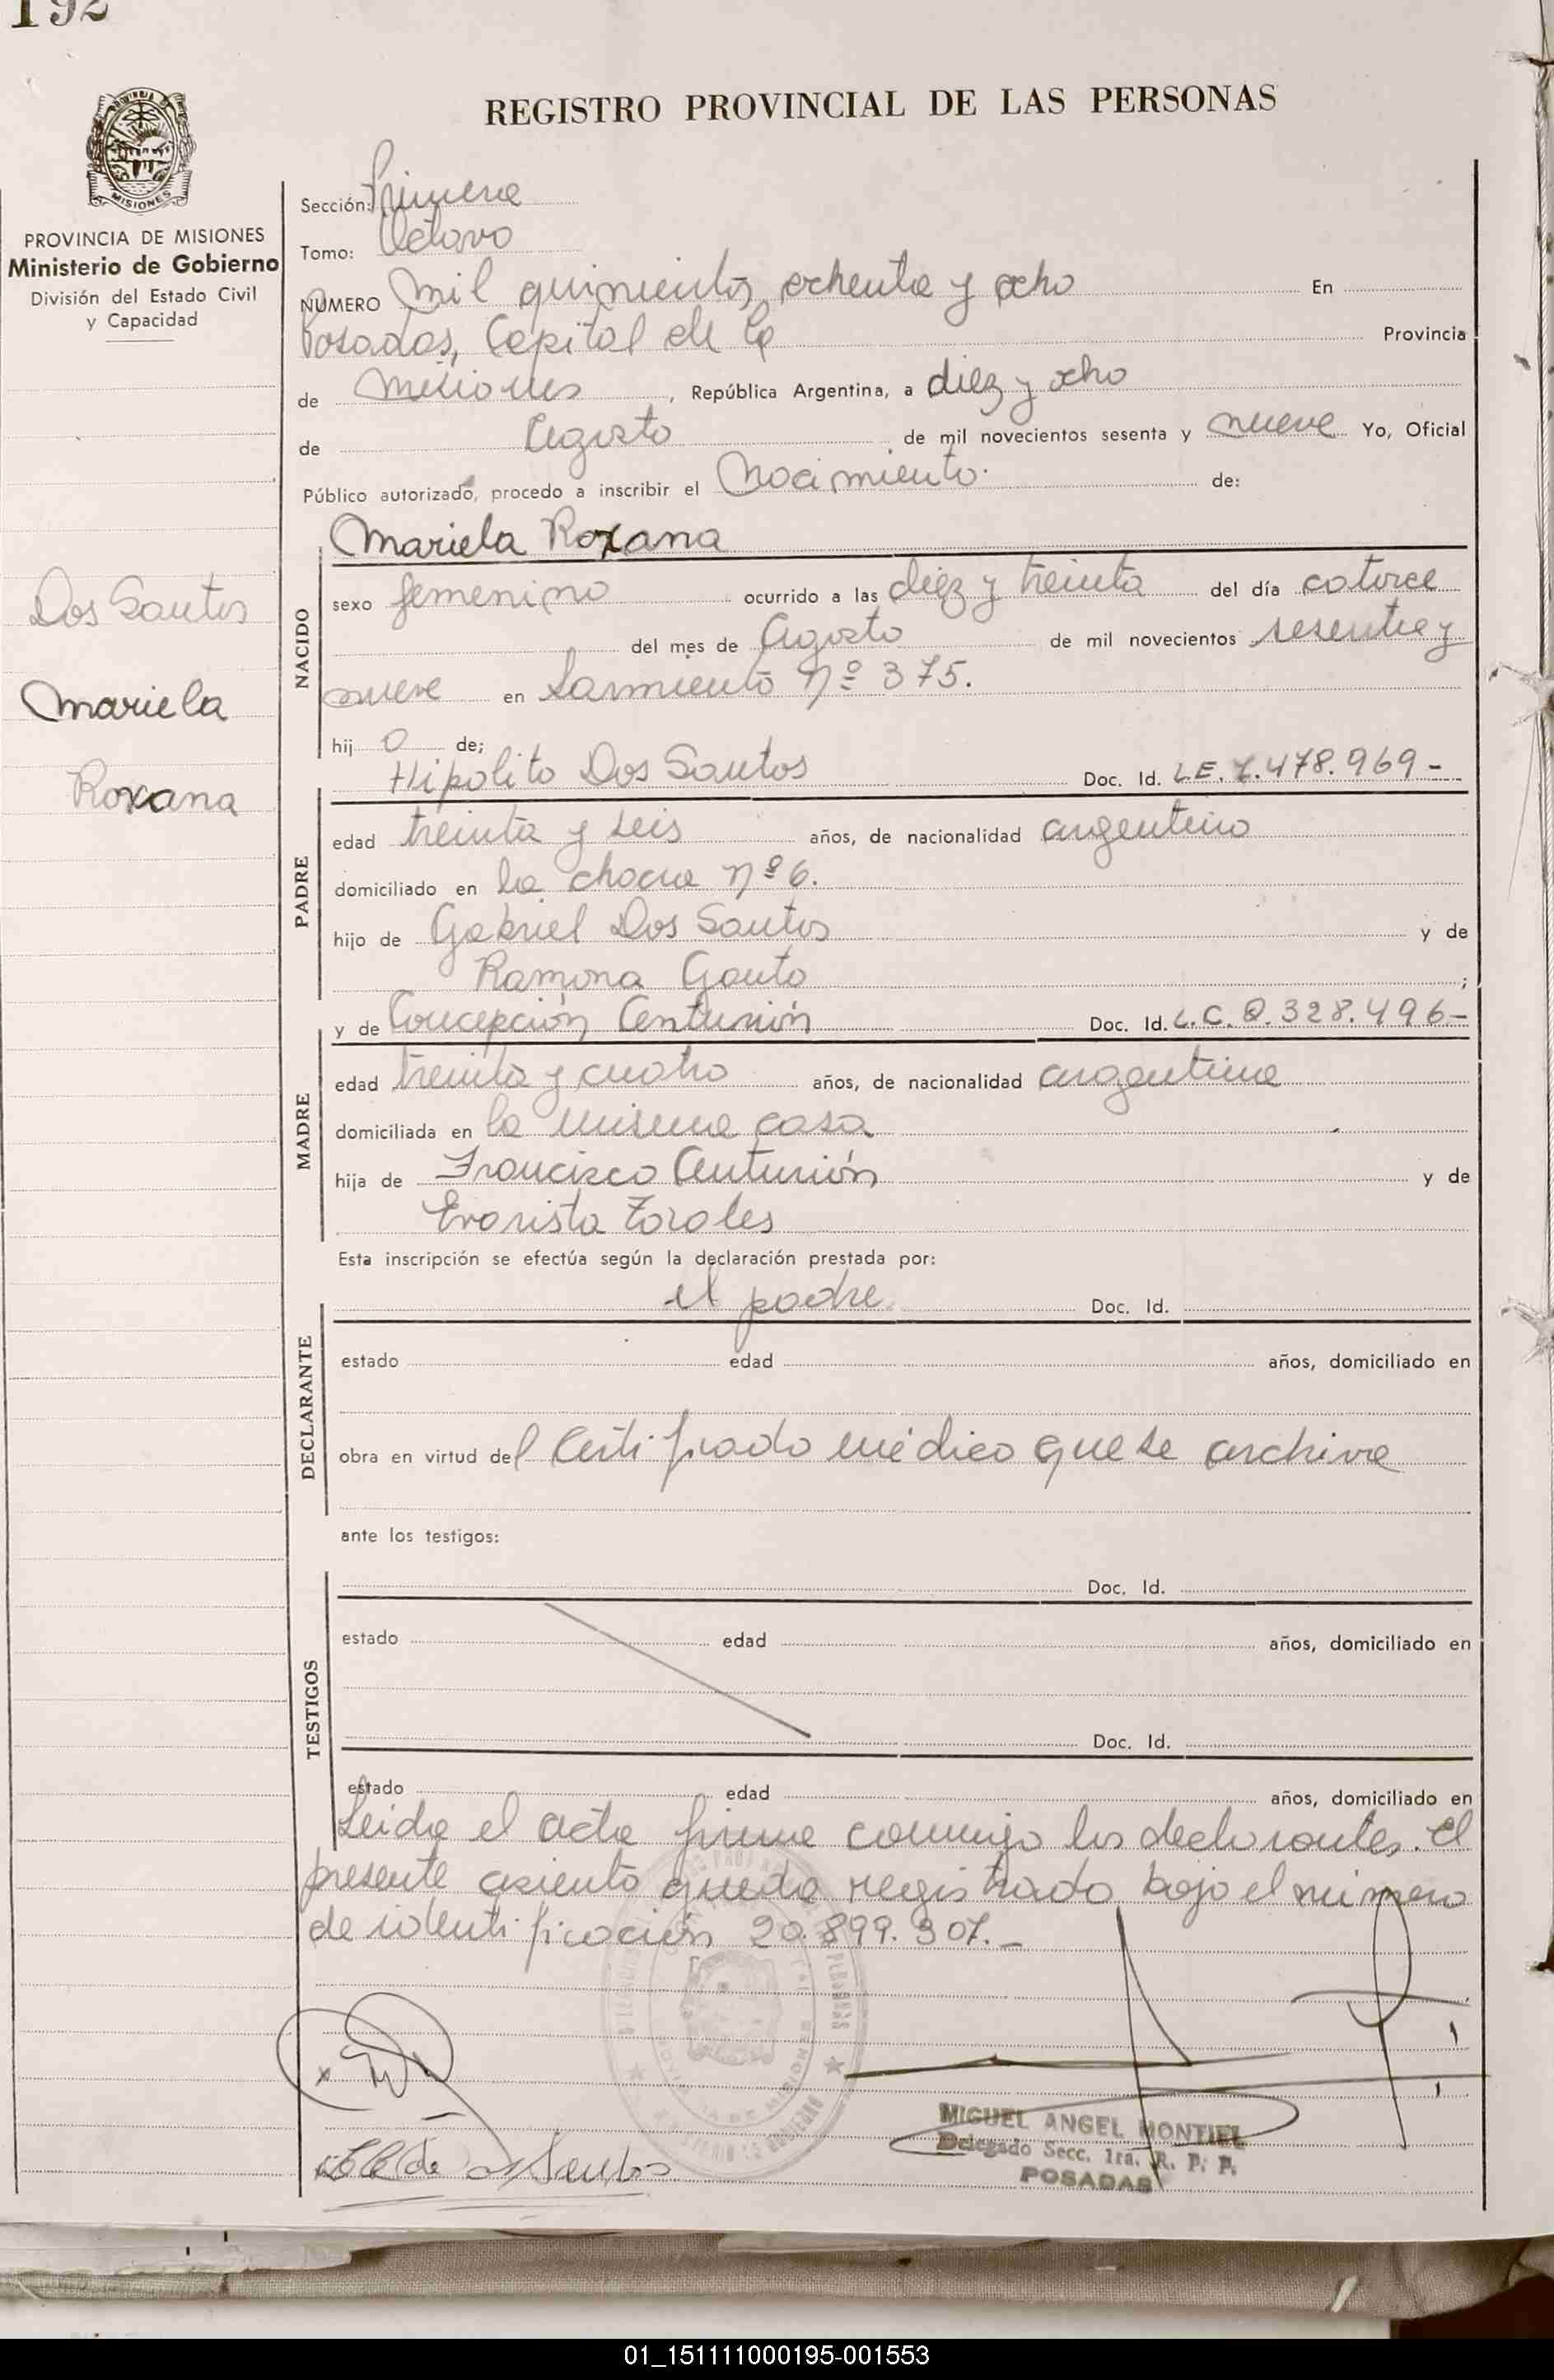 192
REGISTRO PROVINCIAL DE LAS PERSONAS
MISIONES
PROVINCIA DE MISIONES
Ministerio de Gobierno
División del Estado Civil
y Capacidad
Dos Santos
Mariela
Roxana
Sección: Primera
Tomo: Octavo
NUMERO mil quinientos ochenta y ocho En
Posadas, Capital de la Provincia
de Misiones, República Argentina, a diez y ocho
de Agosto de mil novecientos sesenta y nueve Yo, Oficial
Público autorizado, procedo a inscribir el Nacimiento. de:
Mariela Roxana
NACIDO
sexo femenino ocurrido a las diez y treinta del día catorce
del mes de Agosto de mil novecientos sesenta y
nueve en Sarmiento nº 375.
hij a de;
Hipolito Dos Santos Doc. Id. L.E. 7.478.969-
PADRE
edad treinta y seis años, de nacionalidad argentino
domiciliado en la chacra nº 6.
hijo de Gabriel Dos Santos y de
Ramona Gauto ;
y de Concepción Centurión Doc. Id. L.C. 328.496-
MADRE
edad treinta y cuatro años, de nacionalidad argentina
domiciliada en la misma casa
hija de Francisco Centurión y de
Evarista Zorales
Esta inscripción se efectúa según la declaración prestada por:
el padre. Doc. Id.
DECLARANTE
estado edad años, domiciliado en
obra en virtud del Certificado médico que se archiva
ante los testigos:
TESTIGOS
Doc. Id.
estado edad años, domiciliado en
Doc. Id.
estado edad años, domiciliado en
Leida el acta firma conmigo los declarantes. El
presente asiento queda registrado bajo el número
de identificación 20.899.307.-
MIGUEL ANGEL MONTIEL
Delegado Secc. 1ra. R. P. P.
POSADAS
01_151111000195-001553